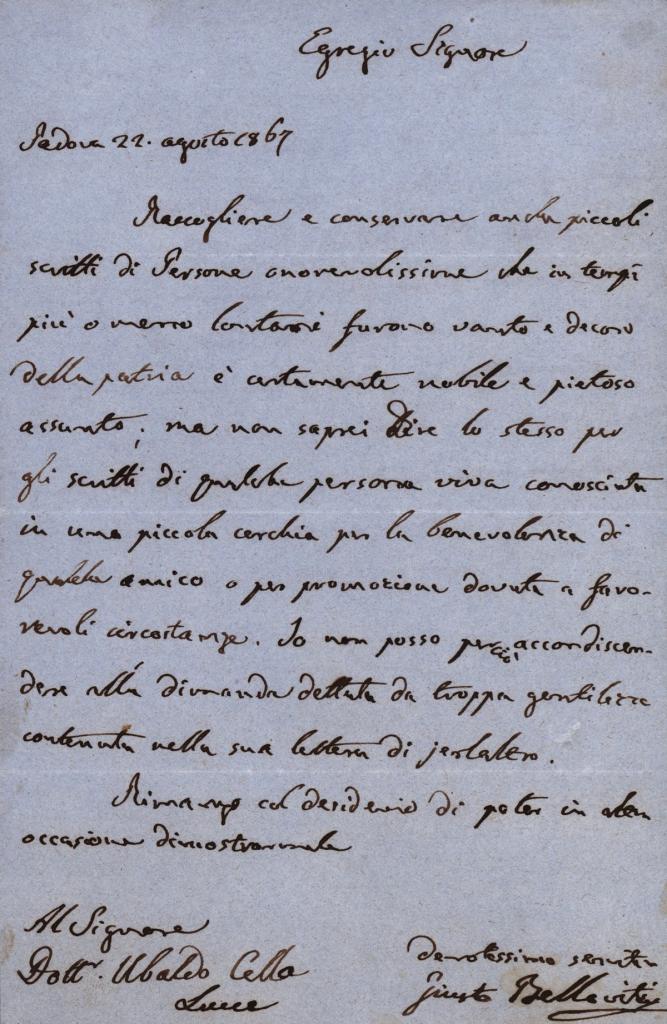 Egregio Signore
Padova 22. agosto 1867
Raccogliere e conservare anche piccoli
scritti di Persone onorevolissime che in tempi
più o meno lontani furono vanto e decoro
della patria è certamente nobile e pietoso
assunto; ma non saprei dire lo stesso per
gli scritti di qualche persona viva conosciuta
in una piccola cerchia per la benevolenza di
qualche amico o per promozione dovuta a favo-
revoli circostanze. Io non posso perciò accondiscen-
dere alla dimanda dettata da troppa gentilezza
contenuta nella sua lettera di jerlaltro.
Rimango col desiderio di poter in altra
occasione dimostrarmele
Al Signore
Dottr. Ubaldo Cella
Lucca
devotissimo servitore
Giusto Bellavitis